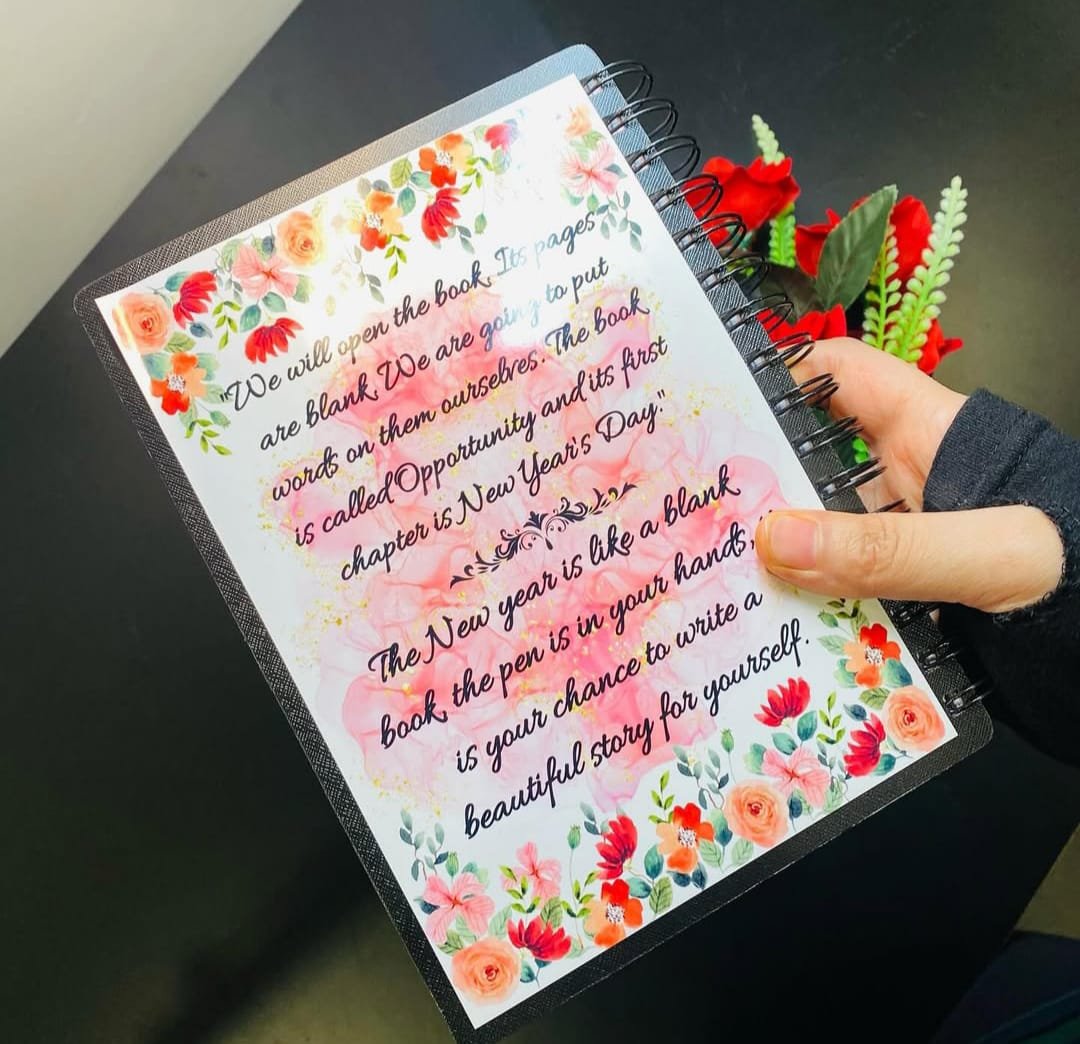 "We will open the book. Its pages
are blank. We are going to put
words on them ourselves. The book
is called Opportunity and its first
chapter is New Year's Day."
The New year is like a blank
book, the pen is in your hands,
is your chance to write a
beautiful story for yourself.